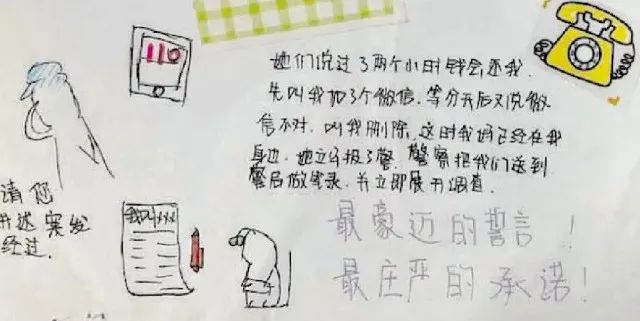 110
她们说过了两个小时钱会还我.
先叫我加了个微信.等分开后又说微
信不对.叫我删除.这时我妈已经在我
身边.她立马报了警.警察把我们送到
警局做笔录.并立即展开调查.
请您
讲述案发
经过.
我叫xxx
最豪迈的誓言!
最庄严的承诺!